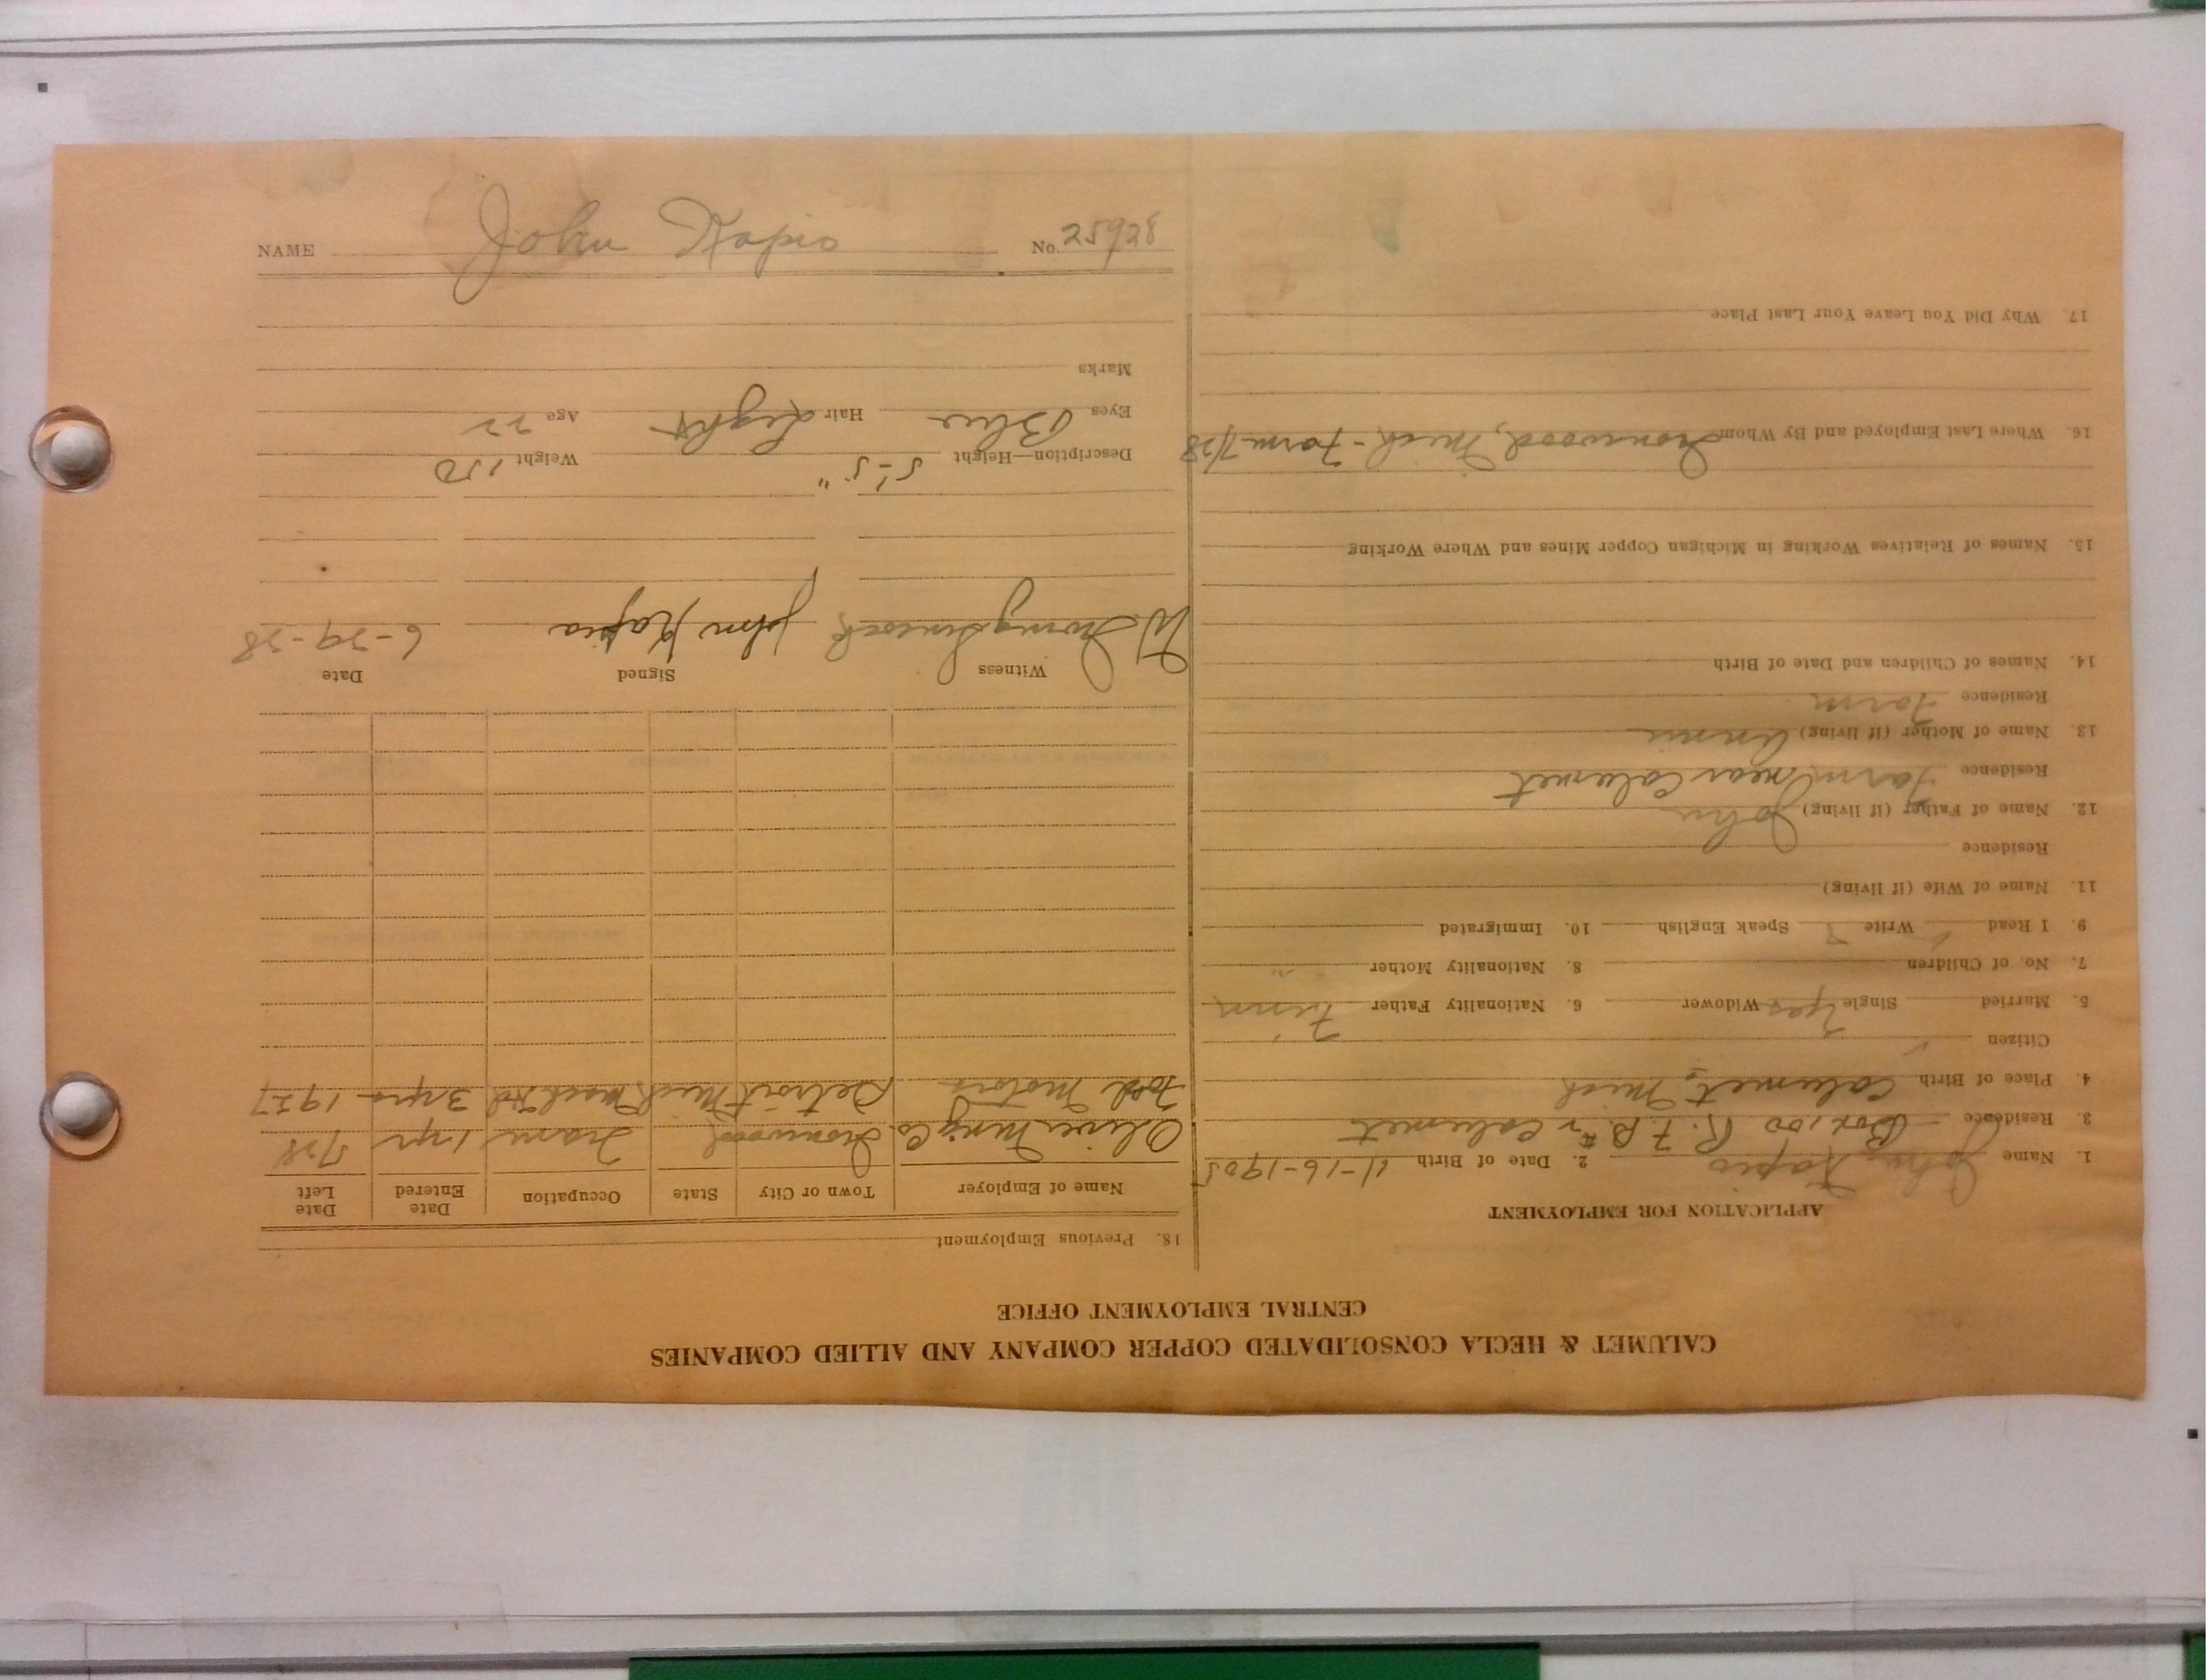 NAME John Kapio No. 25928
CALUMET & HECLA CONSOLIDATED COPPER COMPANY AND ALLIED COMPANIES
CENTRAL EMPLOYMENT OFFICE
APPLICATION FOR EMPLOYMENT
1. Name John Kapio 2. Date of Birth 11-16-1905
3. Residence Box 100 R.F.D. #1 Calumet
4. Place of Birth Calumet, Mich
Citizen
5. Married Single Yes Widower 6. Nationality Father Finn
7. No. of Children 8. Nationality Mother "
9. I Read Write Speak English 10. Immigrated
11. Name of Wife (if living)
Residence
12. Name of Father (if living) John
Residence Farm near Calumet
13. Name of Mother (if living) Annie
Residence Farm
14. Names of Children and Date of Birth
15. Names of Relatives Working in Michigan Copper Mines and Where Working
16. Where Last Employed and By Whom Ironwood, Mich - Farm 7/28
17. Why Did You Leave Your Last Place
18. Previous Employment
Name of Employer Town or City State Occupation Date Entered Date Left
Oliver Mining Co. Ironwood Tram 1 yr
Ford Motors Detroit Mich 3 yrs 1927
Witness Signed Date
W. Irving John Kapio
Description—Height 5'-5" Weight 150
Eyes Blue Hair Light Age 22
Marks